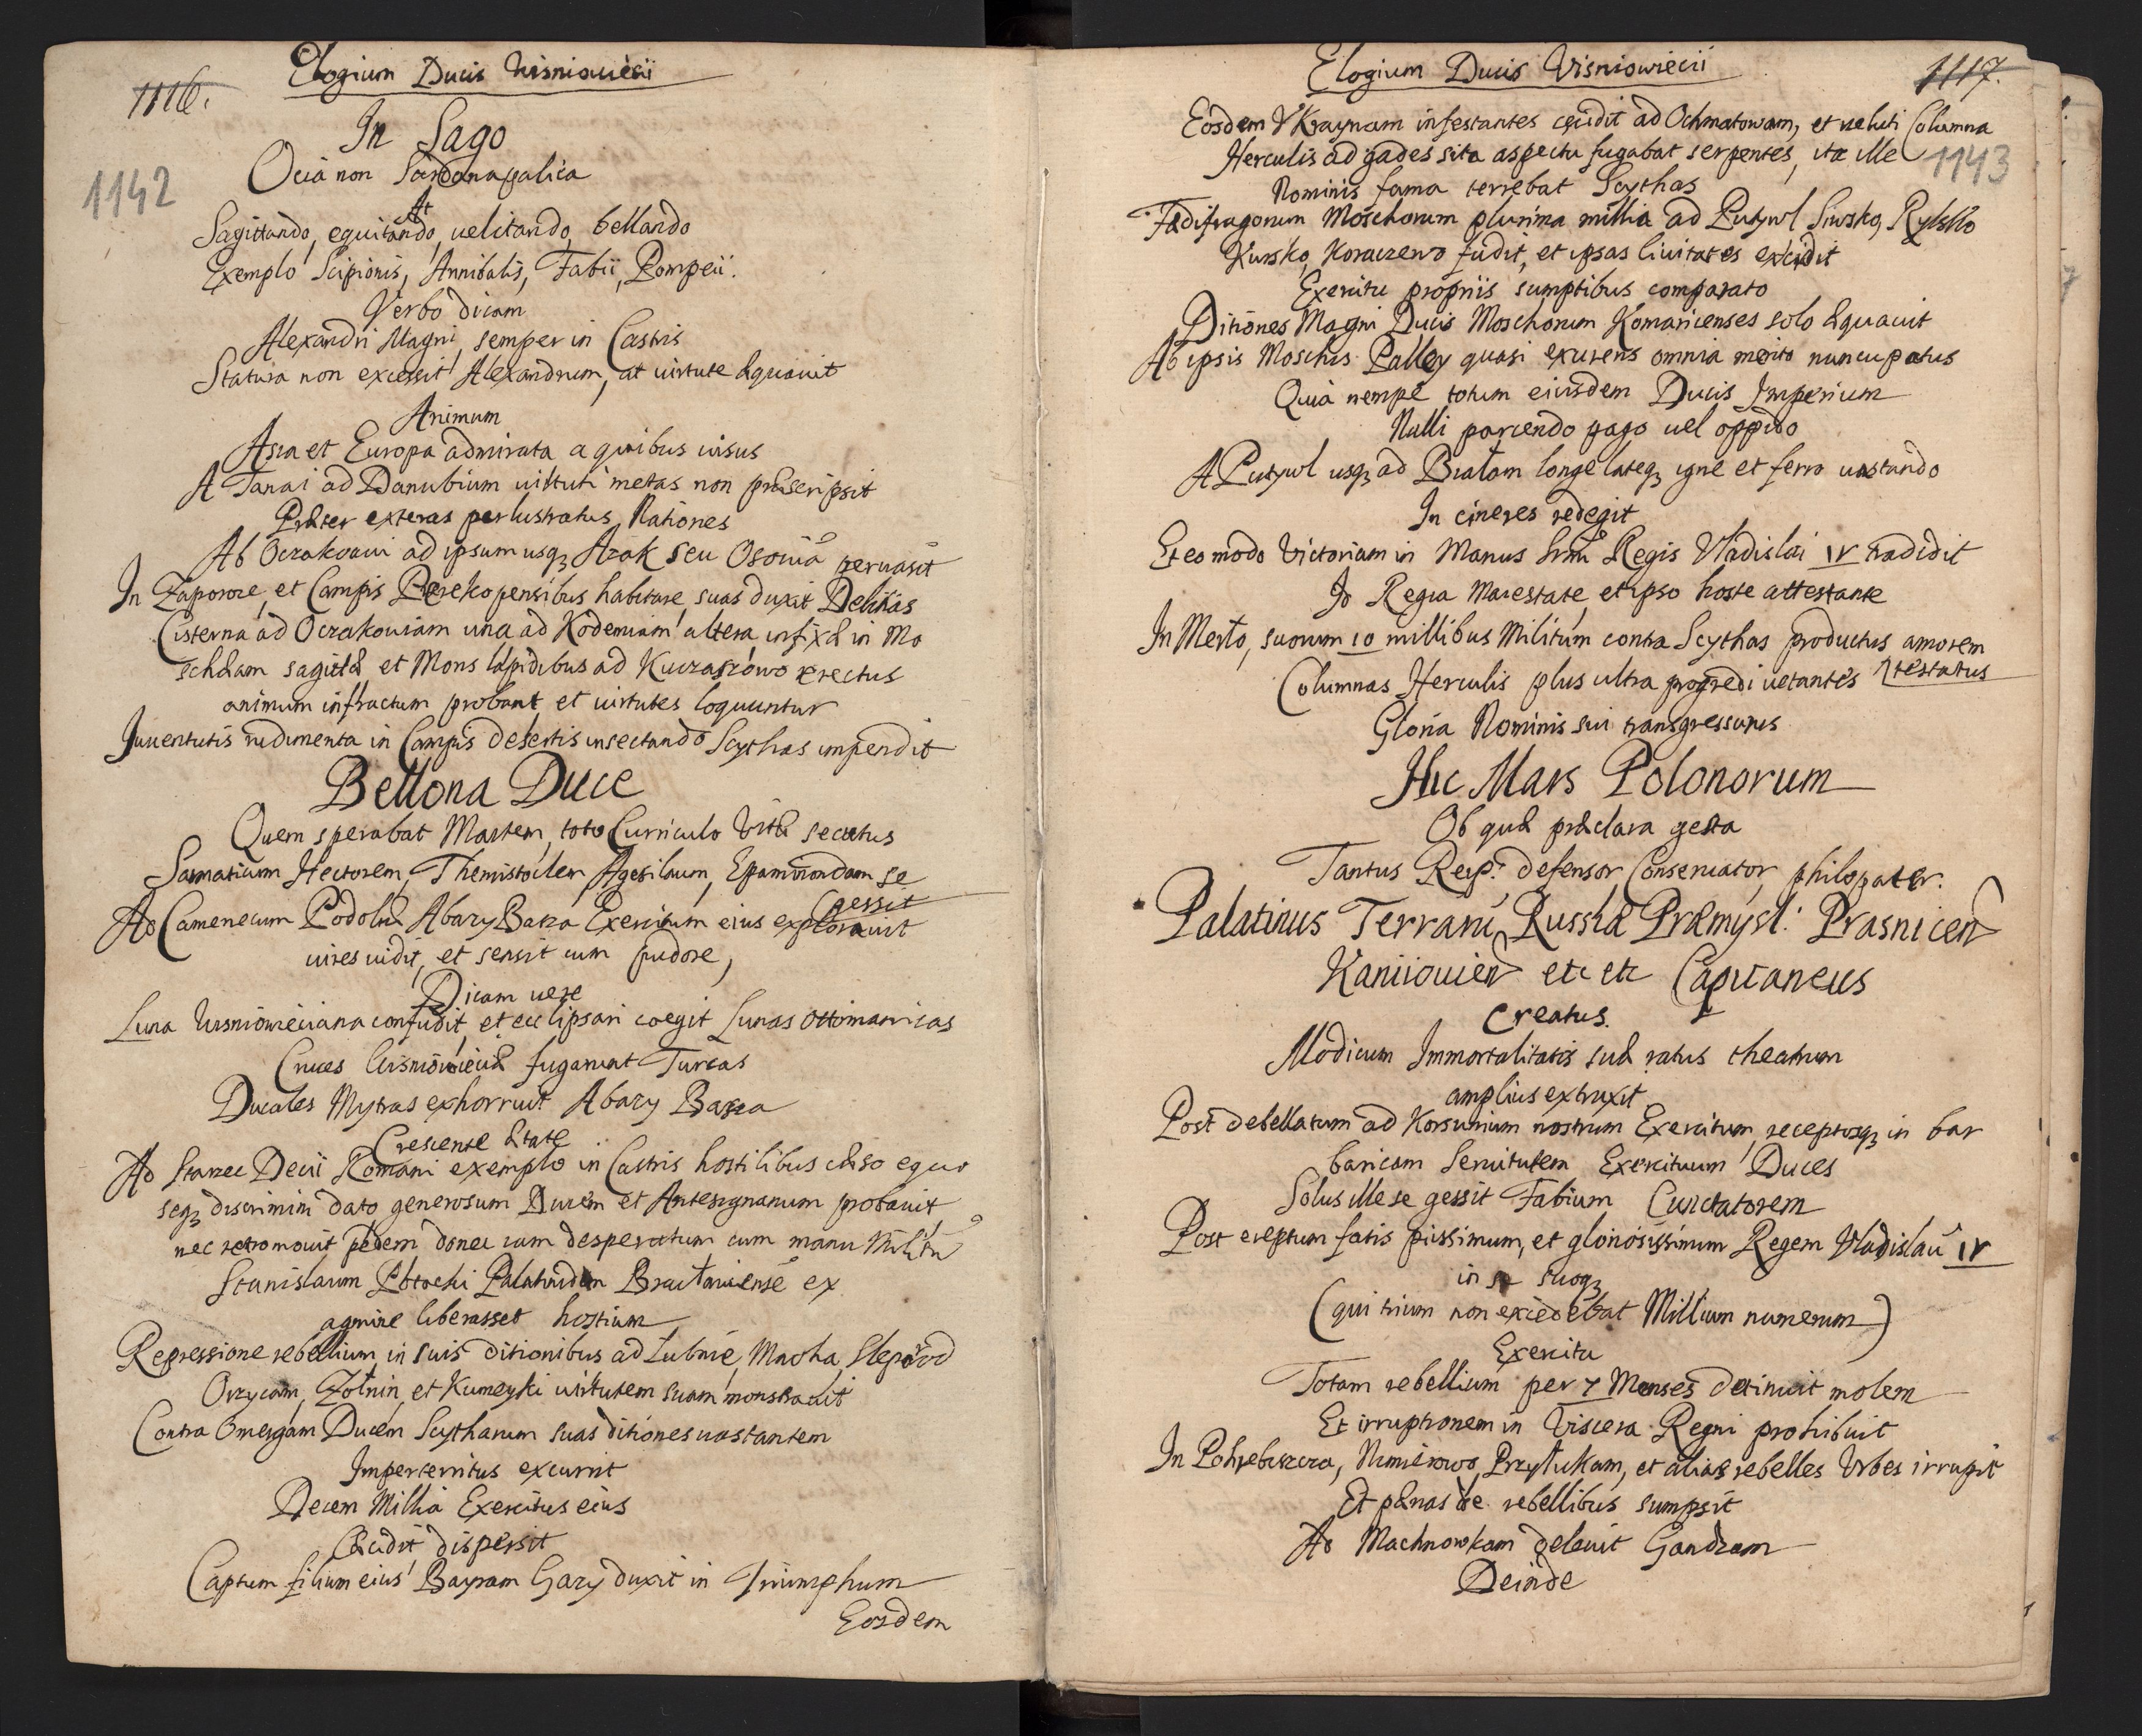 1116.
Elogium Ducis Wisniowiecii
1142
In Sago
Ocia non Sardanapalica
At
Sagittando, equitando, uelitando, bellando
Exemplo Scipionis, Annibalis, Fabii, Pompeii.
Verbo dicam
Alexandri Magni semper in Castris
Statura non excessit Alexandrum, at uirtute æquauit
Animum
Asia et Europa admirata a quibus uisus
A Tanai ad Danubium uirtuti metas non præscripsit
Præter exteras perlustratus Nationes
Ab Oczakoaui ad ipsum usq₃ Azak seu Osoviã peruasit
In Zaporoze, et Campis Perekopensibus habitare suas duxit Delitias
Cisterna ad Oczakouiam una ad Kodemiam altera, infixæ in Mo
schæam sagittæ et Mons lapidibus ad Kuczaszowo erectus
animum infractum probant, et uirtutes loquuntur
Iuuentutis rudimenta in Campis desertis insectando Scythas impendit
Bellona Duce
Quem sperabat Martem, toto Curriculo Vitæ secutus
Sarmaticum Hectorem, Themistoclem Agesilaum, Epaminondam se
gessit
Ad Camenecum Podoliæ Abazy Basza Exercitum eius explorauit
uires uidit, et sensit cum pudore,
Dicam uere
Luna Wisniowieciana confudit, et ecclipsari coegit Lunas Ottomannicas
Cruces Wisniowieciæ fugarunt Turcas
Ducales Mytras exhorruit Abazy Basza
Crescente ætate
Ad Stanec Decii Romani exemplo in Castris hostilibus cæso equo
seq₃ discrimini dato generosum Ducem et Antesignanum probauit
nec retromouit pedem donec iam desperatum cum manu Militũ
Stanislaum Potocki Palatinidem Bracłauiensẽ ex
agmine liberasset hostium
Repressione rebellium in suis ditionibus ad Łubnie, Mnoha, Sleporod
Orzycam, Zołnin, et Kumeyki uirtutem suam monstrauit
Contra Omergam Ducem Scytharum suas ditiones uastantem
Imperterritus excurrit
Decem Millia Exercitus eius
Cæcidit dispersit
Captum filium eius Bayram Gazy duxit in Triumphum
Eosdem
Elogium Ducis Visniowiecii
1117.
Eosdem Vkraynam infestantes cæcidit ad Ochmatowam, et ueluti Columna
1143
Herculis ad gades sita aspectu fugabat serpentes, ita ille
Nominis fama terrebat Scythas
Fædifragorum Moschorum plurima millia ad Putywl Siwsko, Rylsko
Kursko, Koraczewo fudit, et ipsas Ciuitates excidit
Exercitu propriis sumptibus comparato
Ditiones Magni Ducis Moschorum Komaricenses solo æquauit
Ab ipsis Moschis Palley quasi exurens omnia merito nuncupatus
Quia nempe totum eiusdem Ducis Imperium
Nulli parcendo pago uel oppido
A Putywl usq₃ ad Białam longe lateq₃ igne et ferro uastando
In cineres redegit
Et eo modo Victoriam in Manus Srmi Regis Vladislai IV tradidit
Id Regia Maiestate et ipso hoste attestante
In Merlo, suorum 10 millibus Militum contra Scythas productus amorem
testatus
Columnas Herculis plus ultra progredi uetantes
Gloria Nominis sui transgressurus
Hic Mars Polonorum
Ob quæ præclara gesta
Tantus Reip: defensor, Conseruator, philopater.
Palatinus Terrarũ Russiæ Præmysl: Prasnicen
Kaniiouien etc etc Capitaneus
Creatus.
Modicum Immortalitatis suæ ratus theatrum
amplius extruxit
Post debellatum ad Korsunium nostrum Exercitum, receptosq₃ in bar
baricam Seruitutem Exercituum Duces
Solus ille se gessit Fabium Cunctatorem
Post ereptum fatis piissimum, et gloriosissimum Regem Vladislaũ IV
in se suoq₃
(qui trium non excedebat Millium numerum)
Exercitu
Totam rebellium per 7 Menses detinuit molem
Et irruptionem in Viscera Regni prohibuit
In Pohrebiszcza, Nimierowo, Przyłukam, et alias rebelles Vrbes irrupit
Et pænas de rebellibus sumpsit
Ad Machnowkam deleuit Gandzam
Deinde